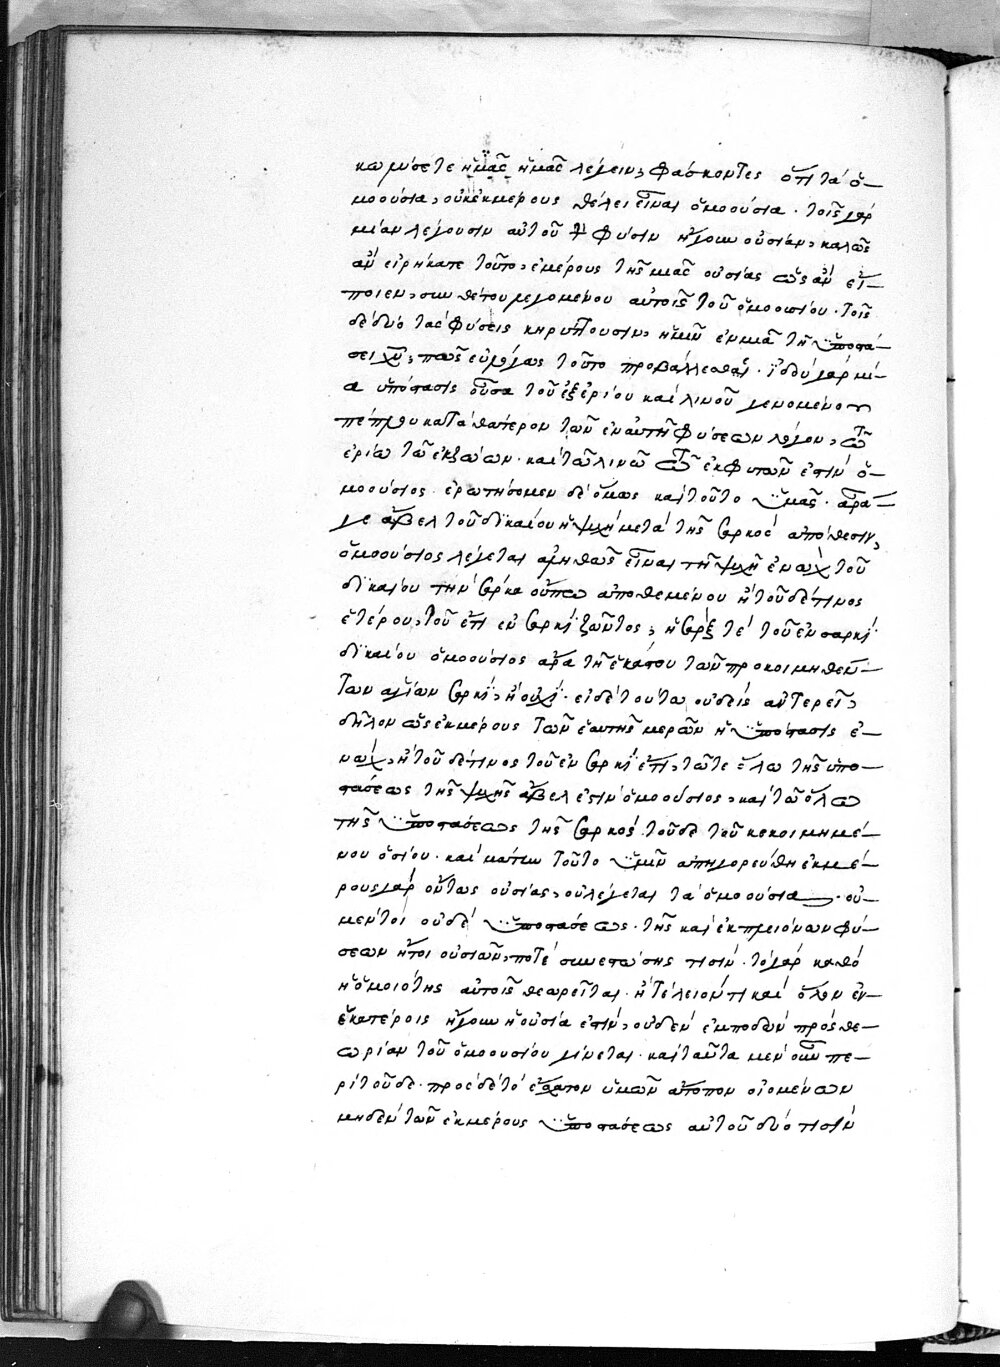 κωμύσετε ἡμᾶς ἡμᾶς λέγειν, φάσκοντες ὅτι τὰ ὁ-
μοούσια, οὐκ ἐκ μέρους θέλει εἶναι ὁμοούσια. τοῖς γὰρ
μίαν λέγουσιν αὐτοῦ τὴν φύσιν ἤγουν οὐσίαν, καλῶς
ἂν εἰρήκατε τοῦτο, ἐκ μέρους τῆς μιᾶς οὐσίας ὡς ἂν εἴ-
ποιεν, συνθέτου λεγομένου αὐτοῖς τοῦ ὁμοουσίου. τοῖς
δὲ δύο τὰς φύσεις κηρύττουσιν, ἡμῖν ἐν μιᾷ τῇ ὑποστά-
σει χυ, πῶς εὐλόγως τοῦτο προβάλλεσθαι. ἰδοὺ γὰρ μί-
α ὑπόστασις οὖσα τοῦ ἐξ ἐρίου καὶ λίνου γενομένου
πέπλου κατὰ θάτερον τῶν ἐν αὐτῇ φύσεων λόγον, τῷ
ἐρίῳ τῷ ἐκ ζώων. καὶ τῷ λίνῳ τῷ ἐκ φυτῶν ἐστὶν ὁ-
μοούσιος. ἐρωτήσομεν δὲ ὅμως καὶ τοῦτο ὑμᾶς. ἆρά
γε ἄβελ τοῦ δικαίου ἡ ψυχὴ μετὰ τῆς σαρκὸς ἀπόθεσιν,
ὁμοούσιος λέγεται ἀληθῶς εἶναι τῇ ψυχῇ ἐνὼχ τοῦ
δικαίου τὴν σάρκα οὔπω ἀποθεμένου ἢ τοῦ δέ τινος
ἑτέρου, τοῦ ἔτι ἐν σαρκὶ ζῶντος, ἡ σάρξ τε τοῦ ἐν σαρκὶ
δικαίου ὁμοούσιος ἆρα τῇ ἑκάστου τῶν προκοιμηθέν-
των ἁγίων σαρκὶ, ἢ οὐχί. εἰ δὲ τούτω οὐδεὶς ἀντερεῖ,
δῆλον ὡς ἐκ μέρους τῶν ἑαυτῆς μερῶν ἡ ὑπόστασις ἐ-
νὼχ, ἢ τοῦ δέ τινος τοῦ ἐν σαρκὶ ἔτι, τῶ τε ὅλω τῆς ὑπο-
στάσεως τῆς ψυχῆς ἄβελ ἐστὶν ὁμοούσιος, καὶ τῶ ὅλω
τῆς ὑποστάσεως τῆς σαρκὸς τοῦ δε τοῦ κεκοιμημέ-
νου ὁσίου. καὶ μάτην τοῦτο ὑμῖν ἀπηγορεύθη ἐκ μέ-
ρους γὰρ οὕτως οὐσίας, οὐ λέγεται τὰ ὁμοούσια. οὐ-
μέντοι οὐδὲ ὑποστάσεως. τῆς καὶ ἐκ πλειόνων φύ-
σεων ἤτοι οὐσιῶν, ποτὲ συνεστώσης τισίν. τὸ γὰρ καθὸ
ἡ ὁμοιότης αὐτοῖς θεωρεῖται. ἢ τέλειόν τι καὶ ὅλον ἐν
ἑκατέροις ἤγουν ἡ οὐσία ἐστὶν, οὐδὲν ἐμποδὼν πρὸς θε-
ωρίαν τοῦ ὁμοουσίου γίνεται. καὶ ταῦτα μὲν οὖν πε-
ρὶ τοῦδε. πρὸς δὲ τὸ ἔσχατον ὑμῶν ἄτοπον οἰομένων
μηδὲν τῶν ἐκ μέρους ὑποστάσεως αὐτοῦ δυό τισὶν